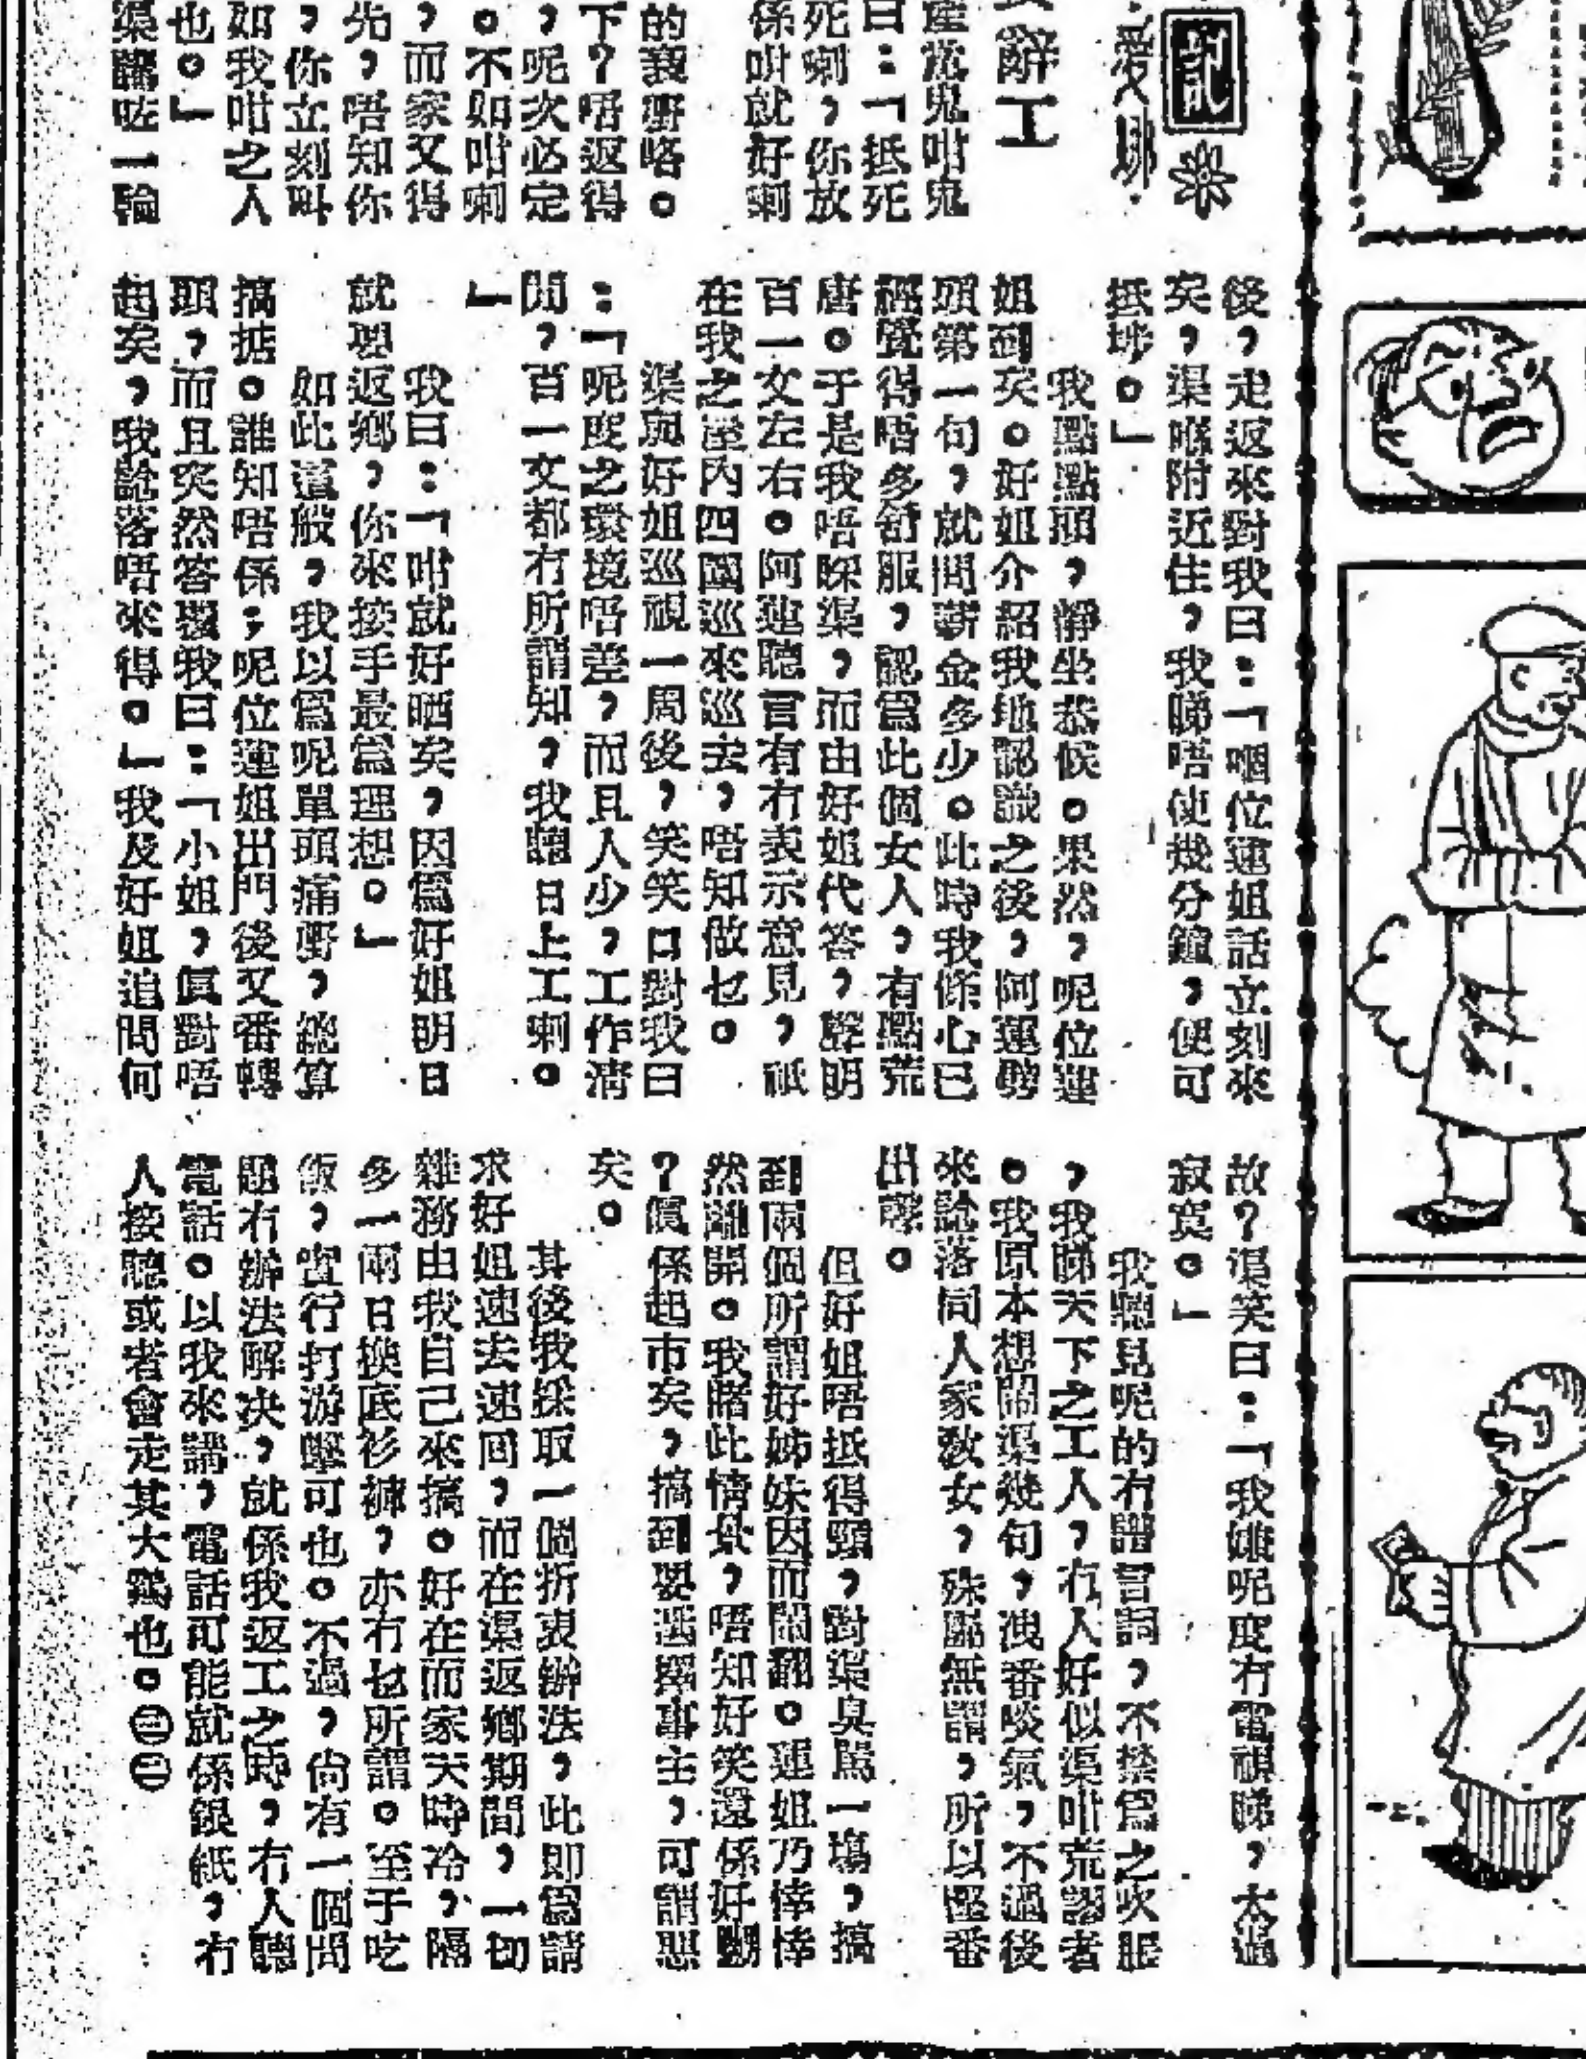 記
辭工
產當鬼咁鬼
曰：「抵死
死喇，你放
係咁就好喇
的衰嘢咯。
下？唔返得
，呢次必定
。不如咁喇
，而家又得
先，唔知你
，你立刻叫
如我咁之人
也。」
渠囉咗一輪
後，走返來對我曰：「嗰位蓮姐話立刻來
矣，渠喺附近住，我睇唔使幾分鐘，便可
抵埗。」
我點點頭，靜坐恭候。果然，呢位蓮
姐到矣。好姐介紹我哋認識之後，阿蓮劈
頭第一句，就問薪金多少。此時我係心已
經覺得唔多舒服，認為此個女人，有點荒
唐。于是我唔睬渠，而由好姐代答，解明
百一文左右。阿蓮聽言有冇表示意見，祇
在我之屋內四圍巡來巡去，唔知做乜。
渠與好姐巡視一周後，笑笑口對我曰
：「呢度之環境唔差，而且人少，工作清
閒，百一文都冇所謂知，我聽日上工喇。
」
我曰：「咁就好晒矣，因為好姐明日
就要返鄉，你來接手最為理想。」
如此這般，我以為呢單頭痛嘢，總算
搞掂。誰知唔係；呢位蓮姐出門後又番轉
頭，而且突然答覆我曰：「小姐，真對唔
起矣，我說落唔來得。」我及好姐追問何
故？渠笑曰：「我嫌呢度冇電視睇，太過
寂寞。」
我聽見呢的冇譜言詞，不禁為之吹脹
，我睇天下之工人，冇人好似渠咁荒謬者
。我原本想鬧渠幾句，洩番啖氣，不過後
來諗落同人家教女，殊屬無謂，所以極番
出聲。
但好姐唔抵得頸，對渠臭罵一塲，搞
到兩個所謂好姊妹因而鬧翻。蓮姐乃悻悻
然離開。我睹此情景，唔知好笑還係好嬲
？真係起市矣，搞到要遷擇事主，可謂惡
矣。
其後我採取一個折衷辦法，此即為請
求好姐速去速回，而在渠返鄉期間，一切
雜務由我自己來搞。好在而家天時冷，隔
多一兩日換底衫褲，亦冇乜所謂。至于吃
飯，實行打游擊可也。不過，尚有一個問
題冇辦法解決，就係我返工之時，冇人聽
電話。以我來講，電話可能就係銀紙，冇
人接聽或者會走其大鷄也。㊂㊁